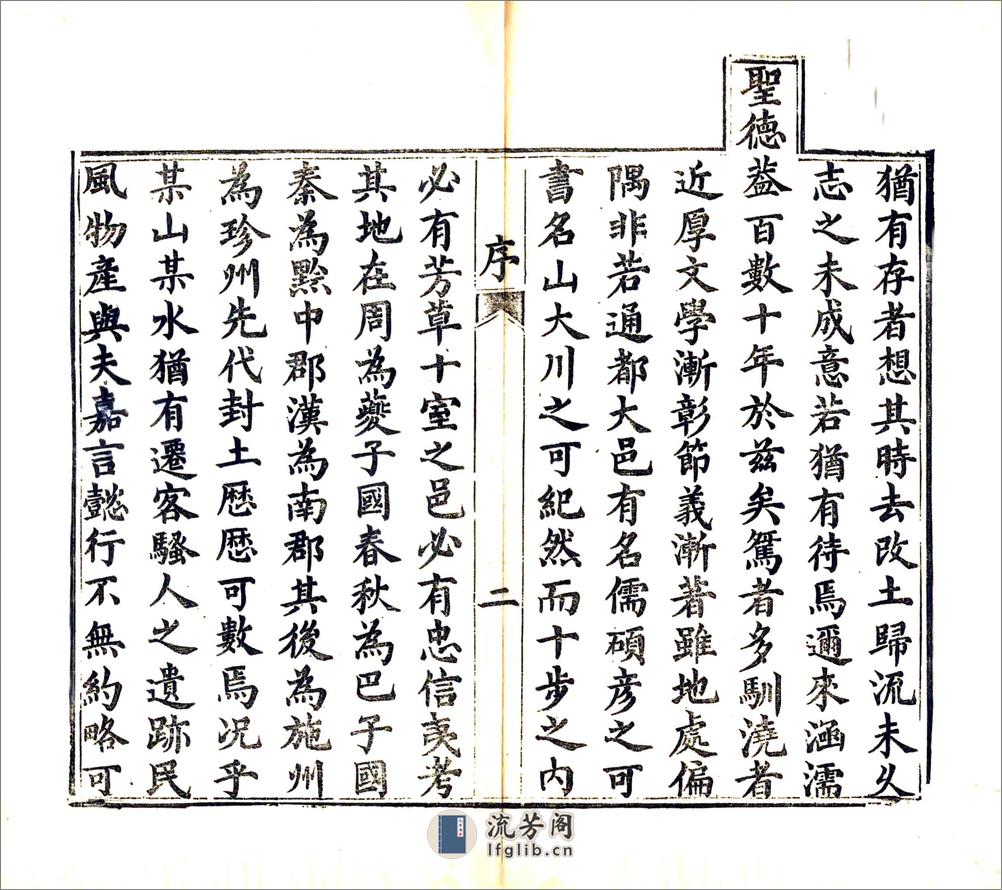 猶有存者想其時去改土歸流未久
志之未成意若猶有待焉邇來涵濡
聖德葢百數十年於兹矣駑者多馴澆者
近厚文學漸彰節義漸著雖地處偏
隅非若通都大邑有名儒碩彥之可
書名山大川之可紀然而十步之内
序
二
必有芳草十室之邑必有忠信夷考
其地在周為夔子國春秋為巴子國
秦為黔中郡漢為南郡其後為施州
為珍州先代封土厯厯可數焉况乎
某山某水猶有遷客騷人之遺跡民
風物產與夫嘉言懿行不無約略可
流芳阁
lfglib.cn